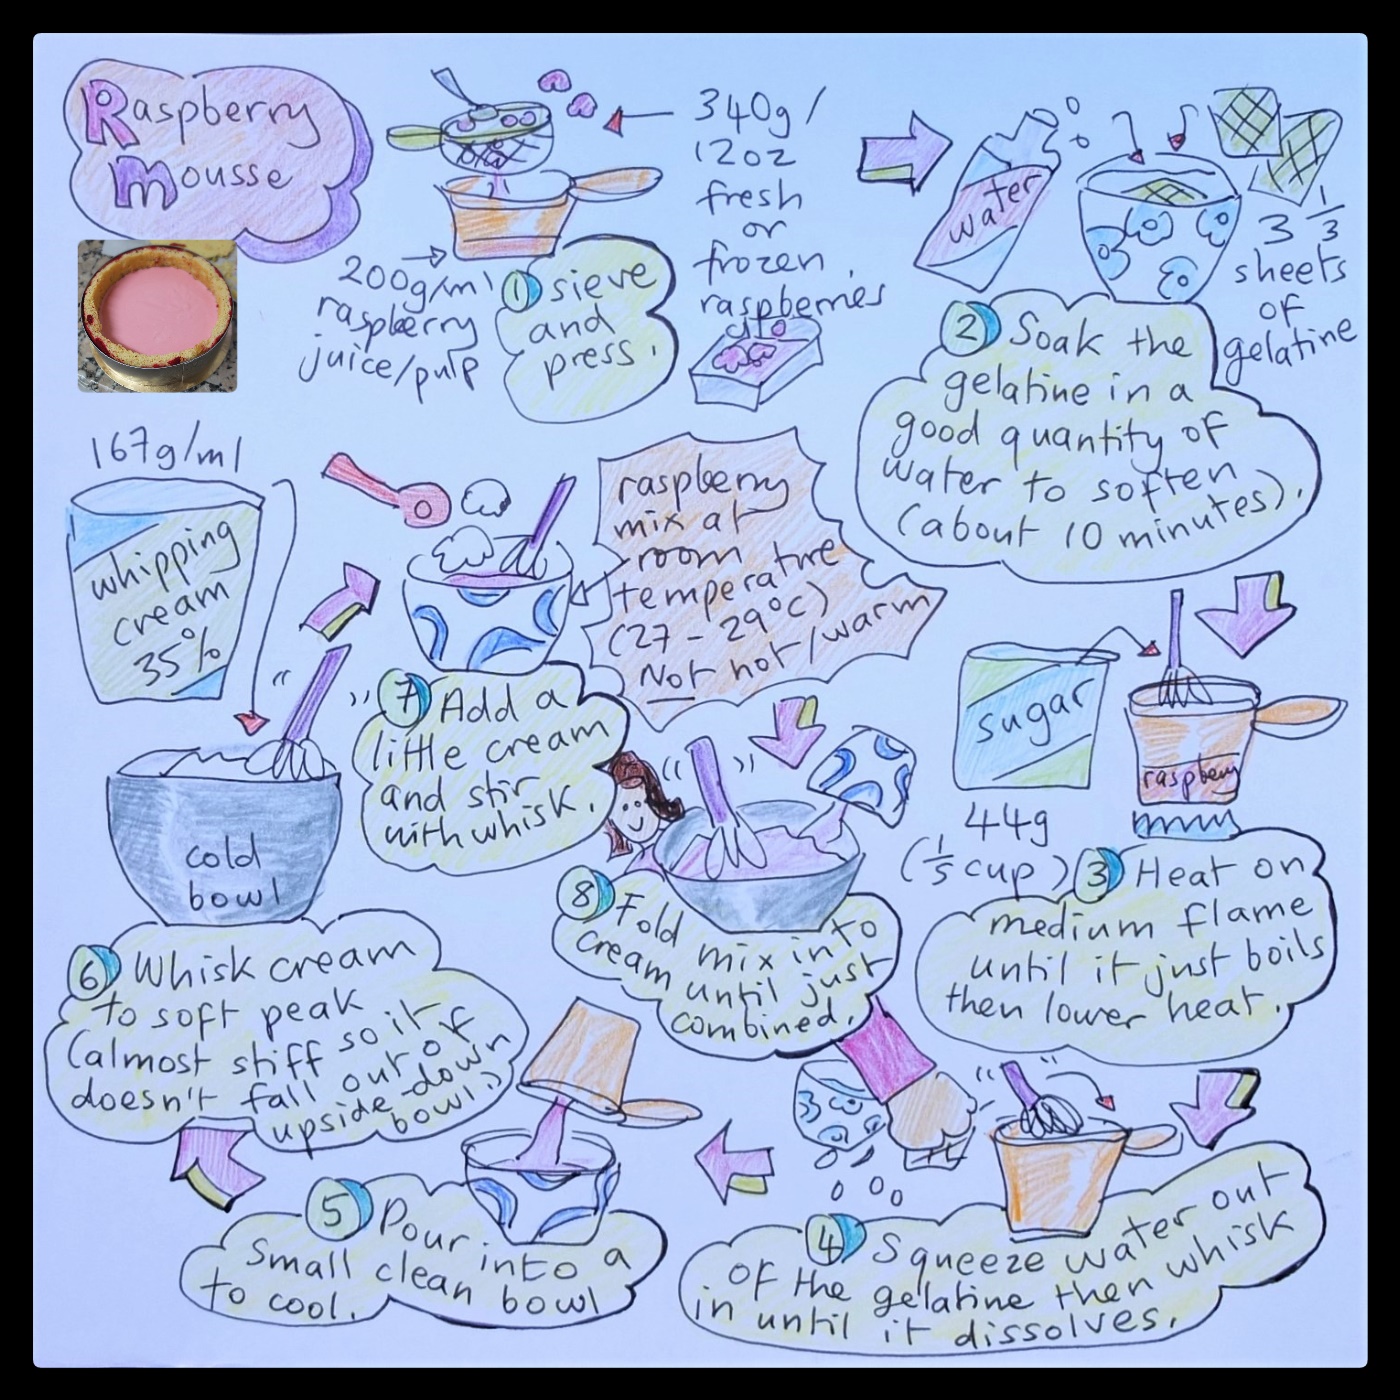 Raspberry
Mousse
340g/
12oz
fresh
or
frozen
raspberries
200g/ml
raspberry
juice/pulp
1 sieve
and
press.
water
3 1/3
sheets
of
gelatine
2 Soak the
gelatine in a
good quantity of
water to soften
(about 10 minutes).
sugar
44g
(1/5 cup)
raspberry
3 Heat on
medium flame
until it just boils
then lower heat.
4 Squeeze water out
of the gelatine then whisk
in until it dissolves.
5 Pour into a
small clean bowl
to cool.
167g/ml
whipping
cream
35%
cold
bowl
6 Whisk cream
to soft peak
(almost stiff so it
doesn't fall out of
upside-down
bowl.)
raspberry
mix at
room
temperature
(27-29°C)
Not hot/warm
7 Add a
little cream
and stir
with whisk.
8 Fold mix into
cream until just
combined.